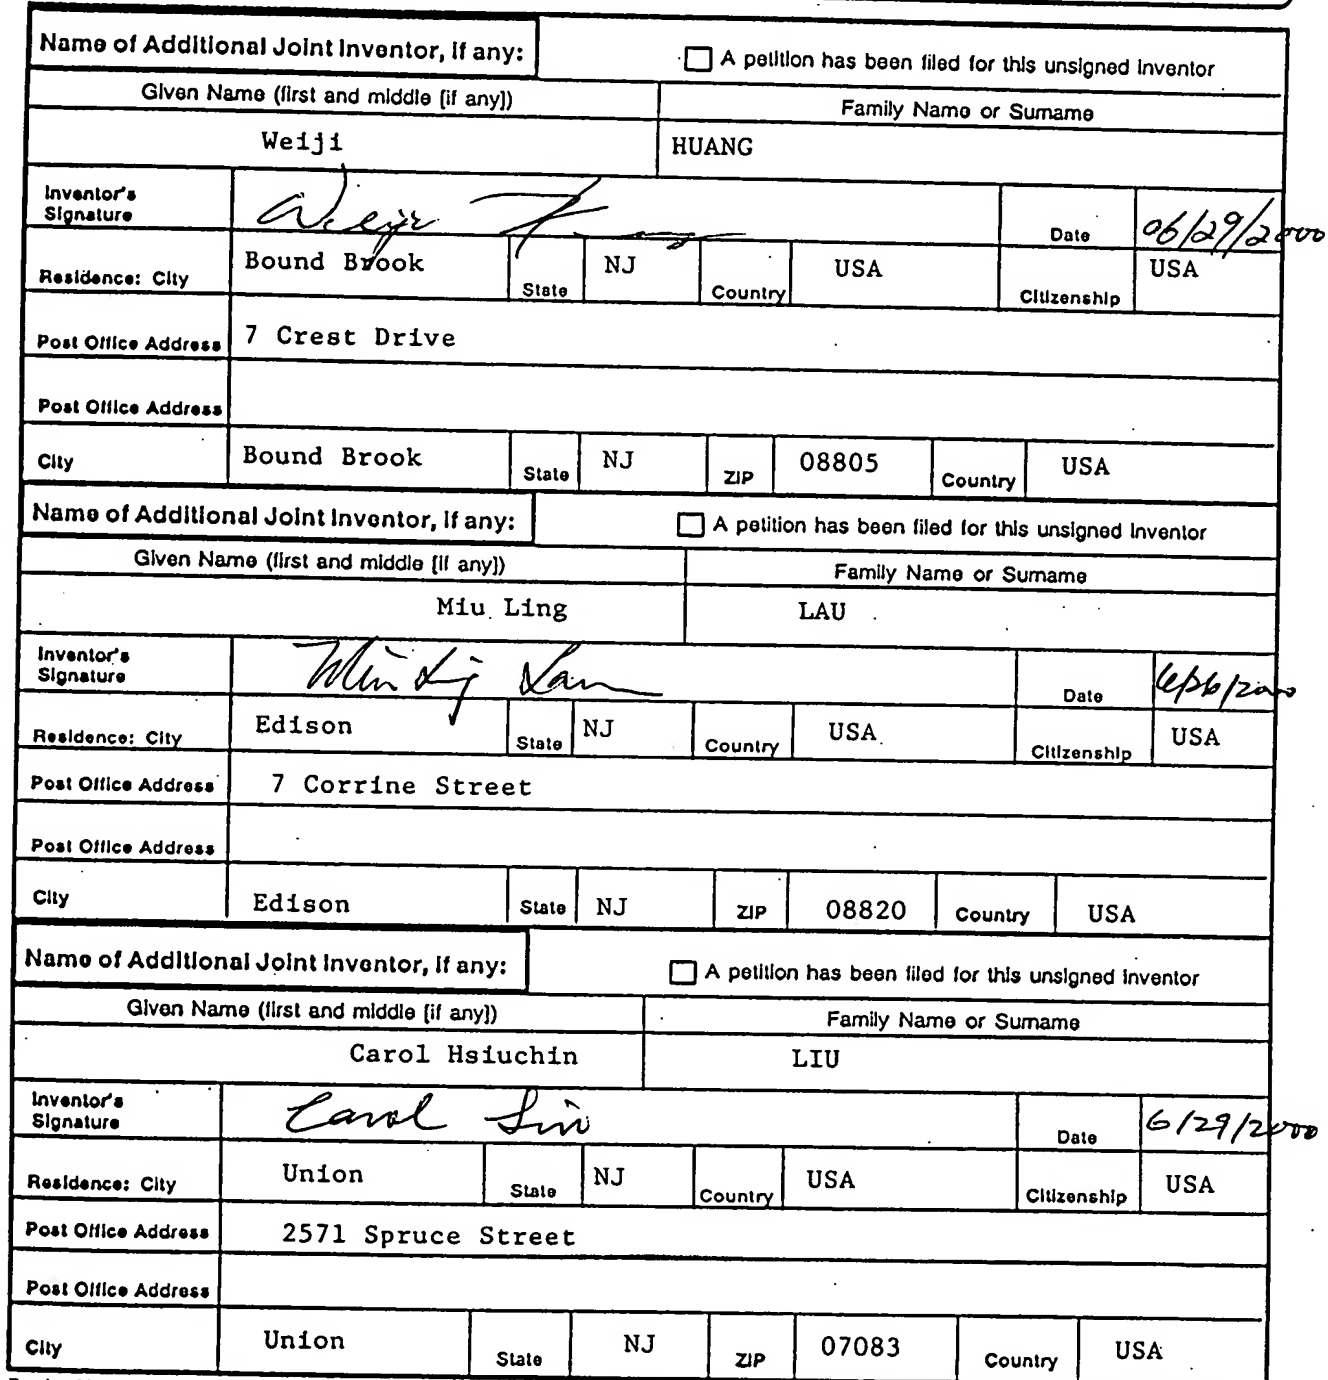 Name of Additional Joint Inventor, if any: ☐ A petition has been filed for this unsigned inventor
Given Name (first and middle [if any]) Family Name or Surname
Weiji HUANG
Inventor's Signature Weiji Huang Date 06/29/2000
Residence: City Bound Brook State NJ Country USA Citizenship USA
Post Office Address 7 Crest Drive
Post Office Address
City Bound Brook State NJ ZIP 08805 Country USA
Name of Additional Joint Inventor, if any: ☐ A petition has been filed for this unsigned inventor
Given Name (first and middle [if any]) Family Name or Surname
Miu Ling LAU
Inventor's Signature Miu Ling Lau Date 6/26/2000
Residence: City Edison State NJ Country USA Citizenship USA
Post Office Address 7 Corrine Street
Post Office Address
City Edison State NJ ZIP 08820 Country USA
Name of Additional Joint Inventor, if any: ☐ A petition has been filed for this unsigned inventor
Given Name (first and middle [if any]) Family Name or Surname
Carol Hsiuchin LIU
Inventor's Signature Carol Liu Date 6/29/2000
Residence: City Union State NJ Country USA Citizenship USA
Post Office Address 2571 Spruce Street
Post Office Address
City Union State NJ ZIP 07083 Country USA